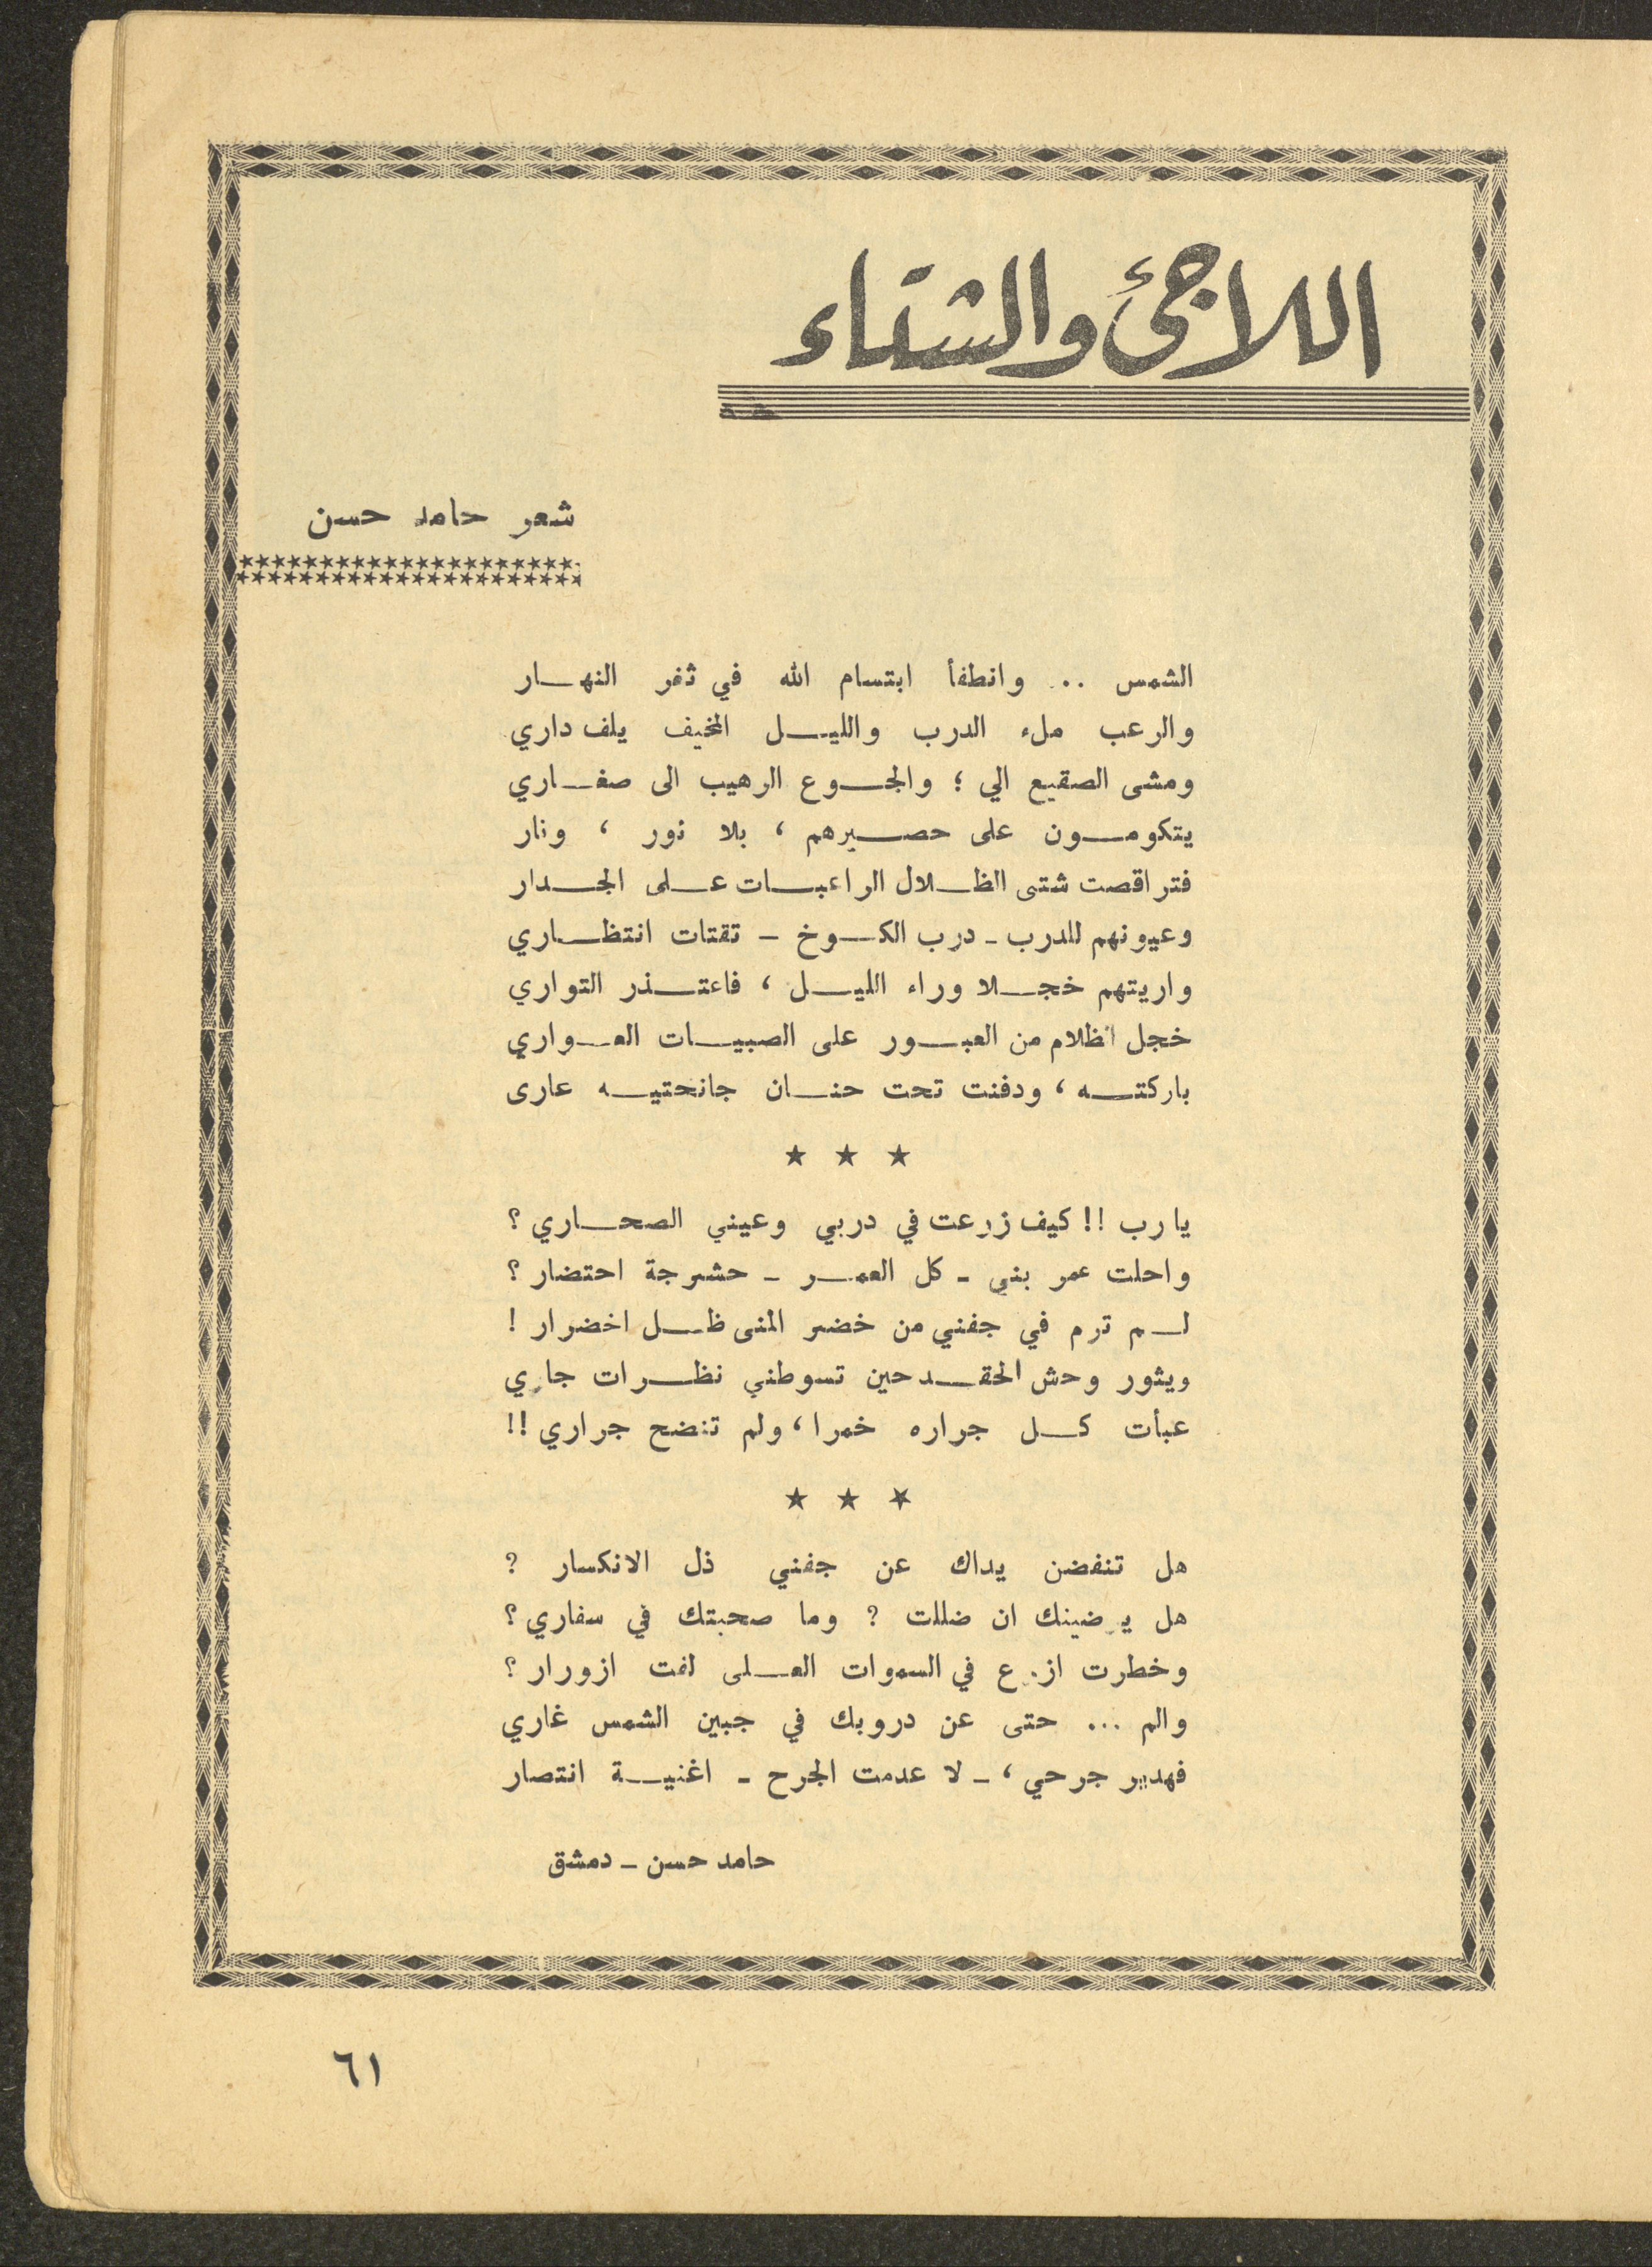 اللاجئ والشتاء
شعر حامد حسن
الشمس .. وانطفأ ابتسام الله في ثغر النهار
والرعب ملء الدرب والليل المخيف يلف داري
ومشى الصقيع الي ؛ والجوع الرهيب الى صغاري
يتكومون على حصيرهم ، بلا نور ، ونار
فتراقصت شتى الظلال الراعبات على الجدار
وعيونهم للدرب - درب الكوخ - تقتات انتظاري
واريتهم خجلا وراء الليل ، فاعتذر التواري
خجل الظلام من العبور على الصبيات العواري
باركته ، ودفنت تحت حنان جانحتيه عارى
★ ★ ★
يارب !! كيف زرعت في دربي وعيني الصحاري ؟
واحلت عمر بني - كل العمر - حشرجة احتضار ؟
لم ترم في جفني من خضر المنى ظل اخضرار !
ويثور وحش الحقد حين تسوطني نظرات جاري
عبأت كل جراره خمرا ، ولم تنضح جراري !!
★ ★ ★
هل تنفضن يداك عن جفني ذل الانكسار ؟
هل يرضينك ان ضللت ؟ وما صحبتك في سفاري ؟
وخطرت ازرع في السموات العلى لفت ازورار ؟
والم ... حتى عن دروبك في جبين الشمس غاري
فهدير جرحي ، - لا عدمت الجرح - اغنية انتصار
حامد حسن - دمشق
٦١